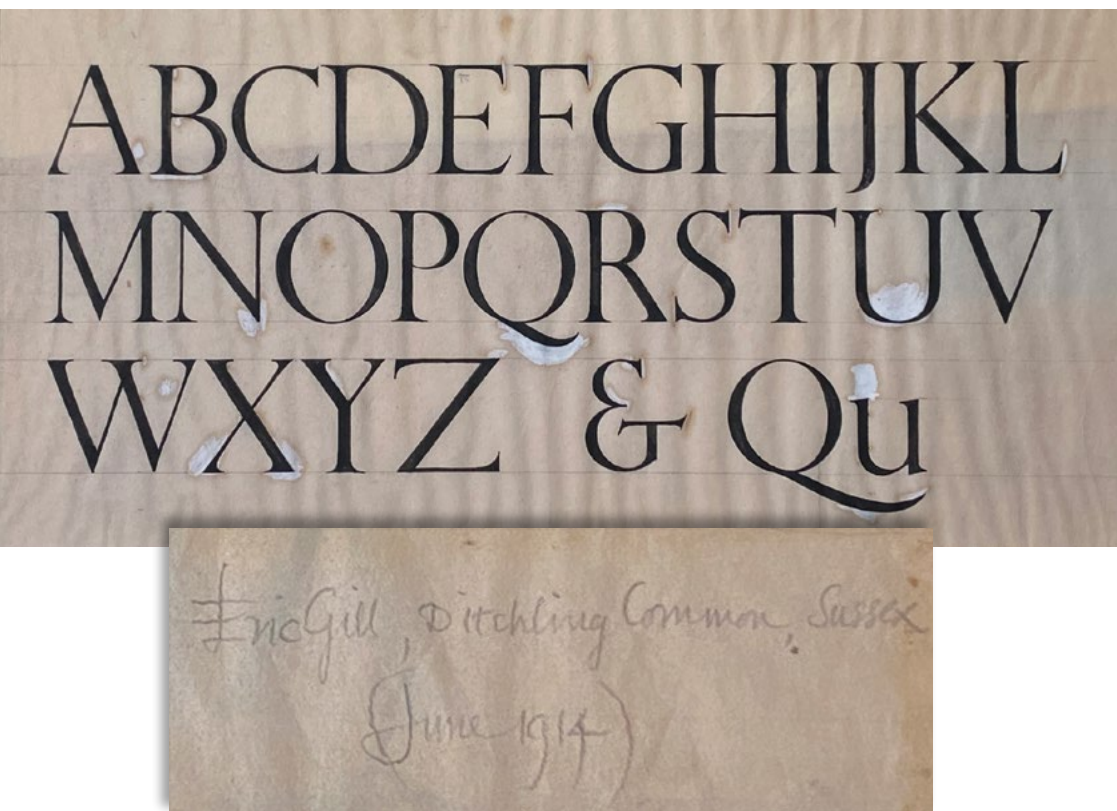 ABCDEFGHIJKL
MNOPQRSTUV
WXYZ & Qu
Eric Gill, Ditchling Common, Sussex
(June 1914)